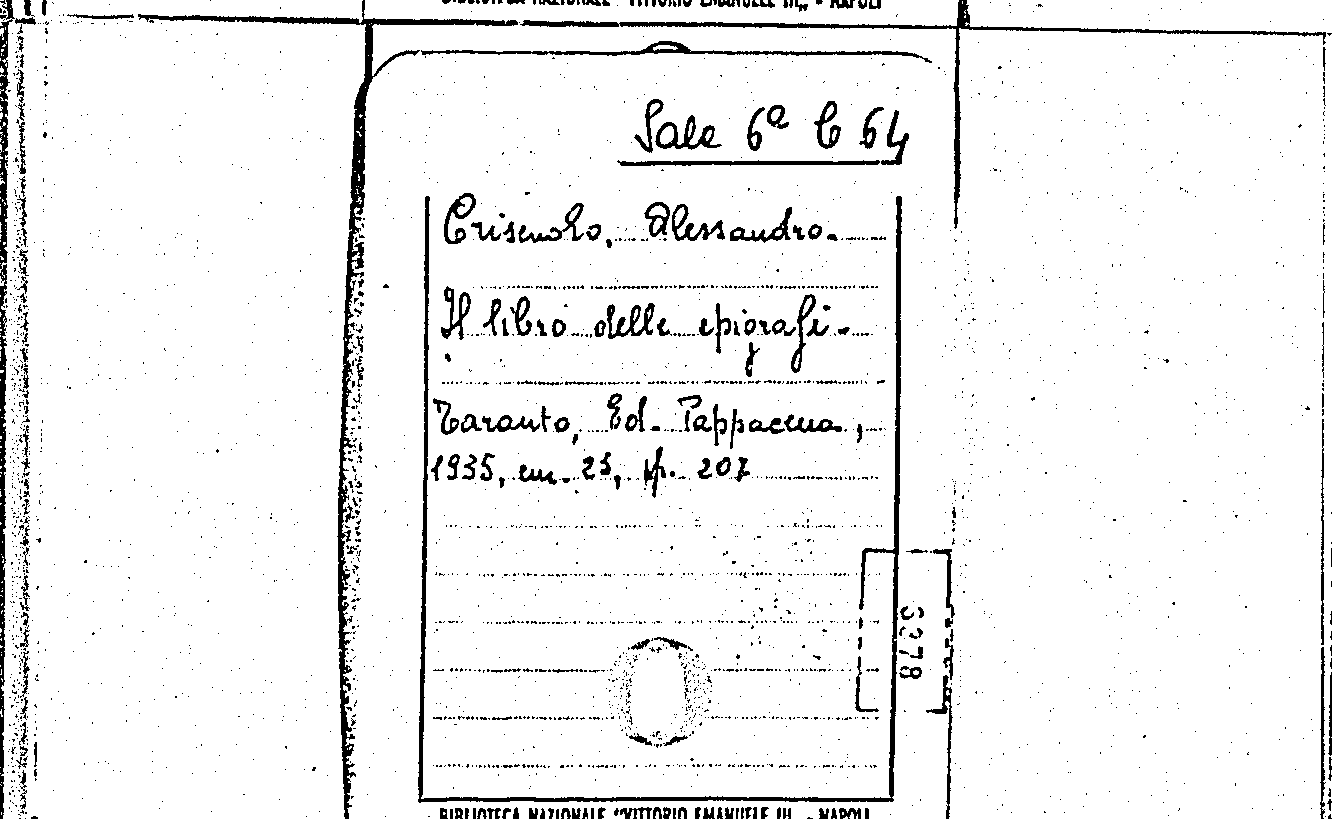 BIBLIOTECA NAZIONALE "VITTORIO EMANUELE III„ - NAPOLI
Sala 6a C 64
Criscuolo, Alessandro.
Il libro delle epigrafi.
Taranto, Ed. Pappacena,
1935, cm. 25, pp. 207
3378
BIBLIOTECA NAZIONALE "VITTORIO EMANUELE III„ - NAPOLI